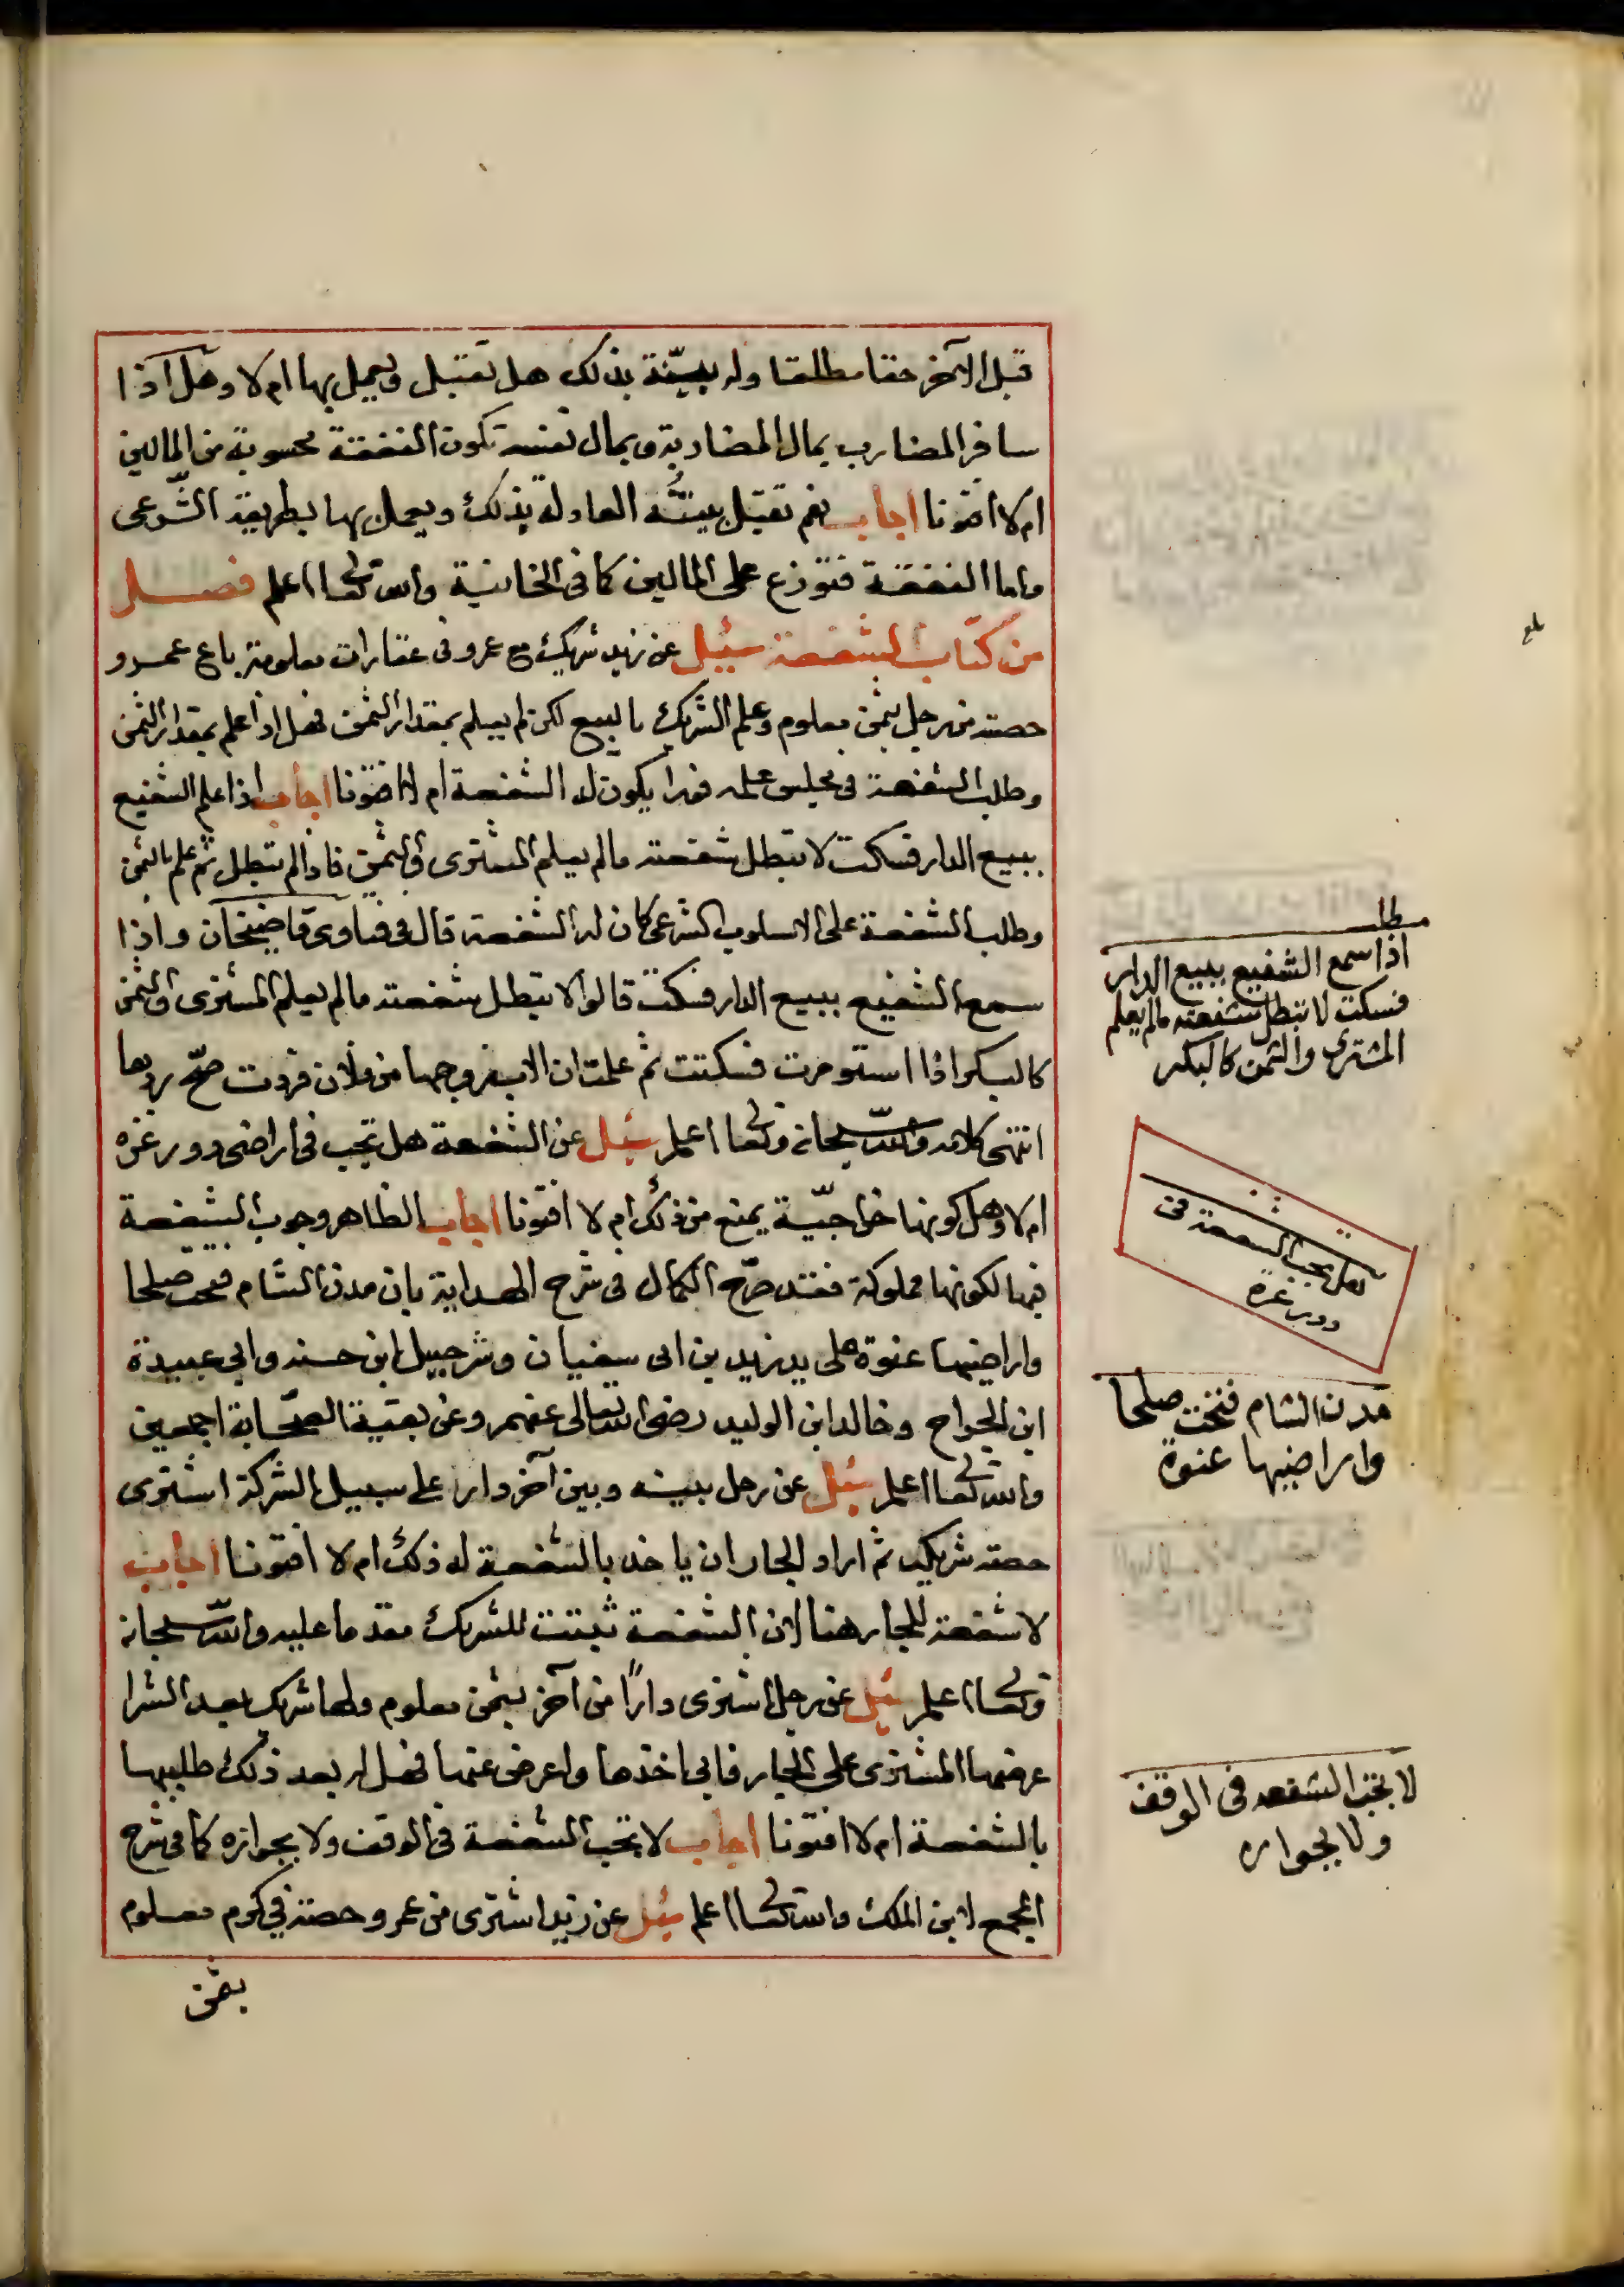 قبل الآخر حقا مطلقا وله بيّنة بذلك هل تقبل ويعمل بها ام لا وهل اذا
سافر المضارب بمال المضاربة وبمال نفسه تكون النفقة محسوبة من المالين
ام لا افتونا اجاب نعم تقبل بينته العادلة بذلك ويعمل بها بطريقه الشّرعى
واما النفقة فتوزع على المالين كما فى الخانية والله تعالى اعلم فصل
من كتاب الشفعة سئيل عن زيد شريك مع عمرو فى عقارات معلومة باع عمرو
حصته من رجل بثمن معلوم وعلم الشريك بالبيع لكن لم يعلم بمقدار الثمن فهل اذا علم بمقدار الثمن
وطلب الشفعة فى مجلس علمه فورا يكون له الشفعة ام لا افتونا اجاب اذا علم الشفيع
ببيع الدار فسكت لا تبطل شفعته مالم يعلم المشترى والثمن فاذا لم تبطل ثم علم بالثمن
وطلب الشفعة على الاسلوب الشرعى كان له الشفعة قال فى فتاوى قاضيخان واذا
سمع الشفيع ببيع الدار فسكت قالوا لا تبطل شفعته مالم يعلم المشترى والثمن
كالبكر اذا استومرت فسكتت ثم علمت ان الاب زوجها من فلان فردت صحّ ردها
انتهى كلامه والله سبحانه وتعالى اعلم سئيل عن الشفعة هل تجب فى اراضى ودور غزه
ام لا وهل كونها خراجيّة يمنع من ذلك ام لا افتونا اجاب الظاهر وجوب الشفعة
فيها لكونها مملوكة فقد صرّح الكمال فى شرح الهداية بان مدن الشام فتحت صلحا
واراضيها عنوة على يد يزيد بن ابى سفيان وشرحبيل ابن حسنه وابى عبيدة
ابن الجراح وخالد ابن الوليد رضى الله تعالى عنهم وعن بقية الصّحابة اجمعين
والله تعالى اعلم سئيل عن رجل بينه وبين آخر دار على سبيل الشركة اشترى
حصته شريكه ثم اراد الجار ان ياخذ بالشفعة له ذلك ام لا افتونا اجاب
لا شفعة للجار هنا لان الشفعة ثبتت للشريك مقدما عليه والله سبحانه
وتعالى اعلم سئيل عن رجل اشترى دارًا من آخر بثمن معلوم ولها شريك بعد الشرا
عرضها المشترى على الجار فابى اخذها واعرض عنها فهل له بعد ذلك طلبها
بالشفعة ام لا افتونا اجاب لا تجب الشفعة فى الوقف ولا بجواره كما فى شرح
المجمع لابن الملك والله تعالى اعلم سئيل عن زيد اشترى من عمرو حصته فى كرم معلوم
بثمن
مطلـ
اذا سمع الشفيع ببيع الدار
فسكت لا تبطل شفعته مالم يعلم
المشترى والثمن كالبكر
هل تجب الشفعة فى
دور غزة
مدن الشام فتحت صلحا
واراضيها عنوة
لا تجب الشفعه فى الوقف
ولا بجواره